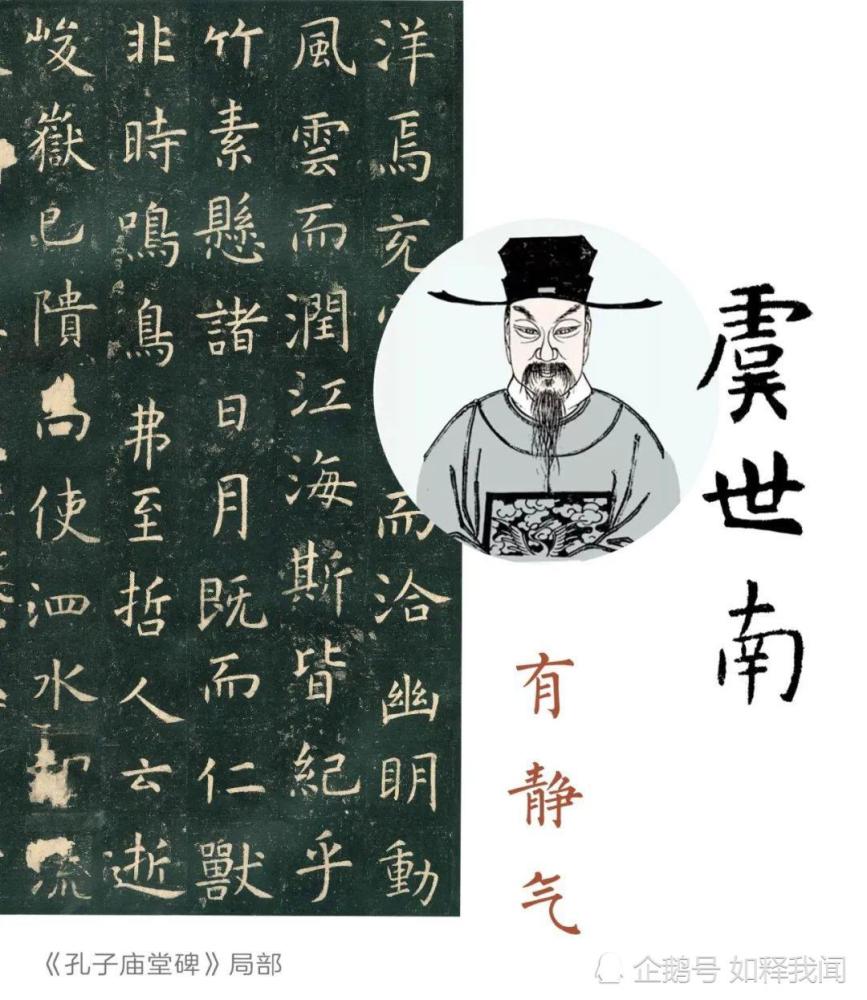 洋焉充而洽幽明動
風雲而潤江海斯皆紀乎
竹素懸諸日月既而仁獸
非時鳴鳥弗至哲人云逝
峻嶽已隤尚使泗水却流
虞世南
有静气
《孔子庙堂碑》局部
企鹅号 如释我闻